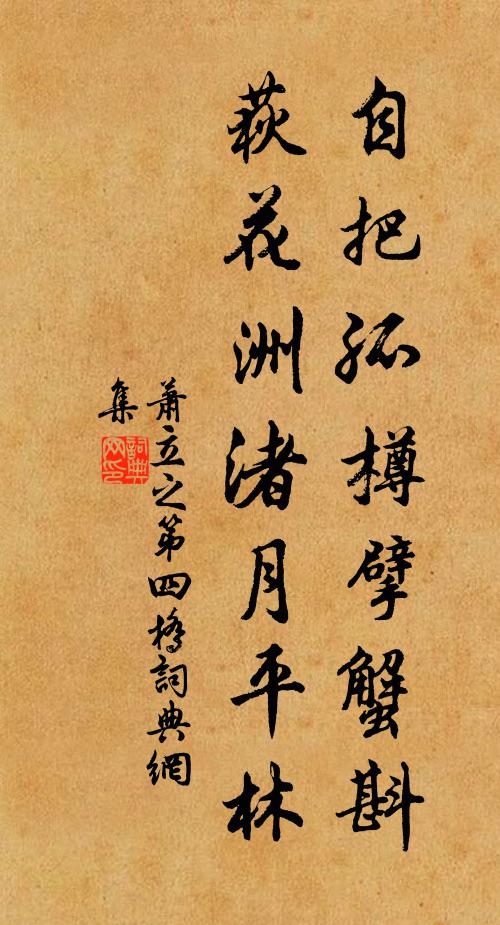 自把孤樽擘蟹斟
荻花洲渚月平林
萧立之第四桥詞典網
集
詞典網印